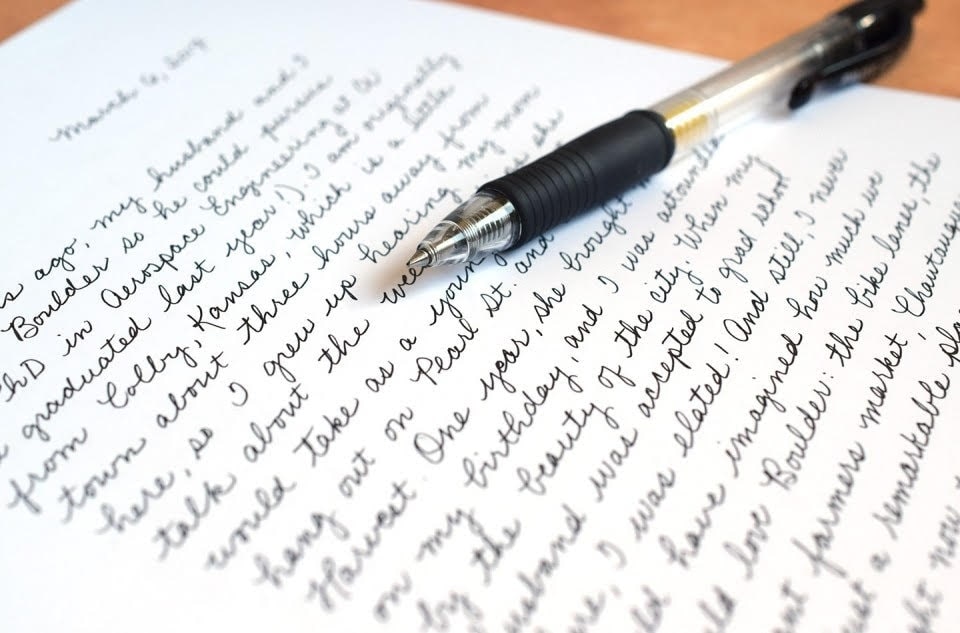 March 6,
s ago, my husband and I
Boulder so he could pursue
PhD in Aerospace Engineering at
graduated last year!). I am originally
from Colby, Kansas, which is a little
town about three hours away from
here, so I grew up hearing my mom
talk about the
would take as a young
hang out on Pearl St. and
Harvest. One year, she brought
on my birthday, and I was astounded
by the beauty of the city. When my
husband was accepted to grad school
re, I was elated! And still, I never
ld have imagined how much we
ld love Boulder: the bike lanes, the
ant farmers market, Chautauqua
st a remarkable pla
ght now